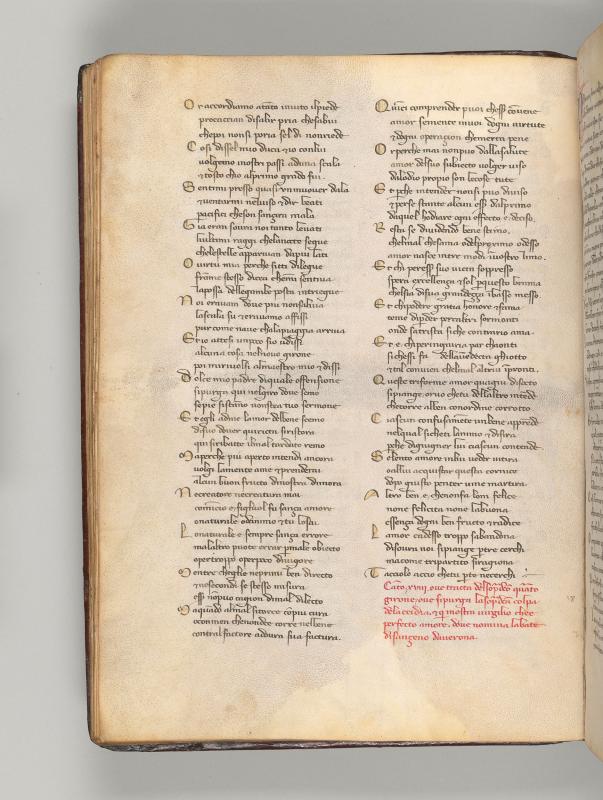 Or accordiamo atāto inuito ilpiede
procaccian disalir pria chesabui
chepoi nonsi poria sel di nonriede
Cosi dissel mio duca ⁊ io conlui
volgemo inostri passi aduna scala
⁊ tosto chio alprimo grado fui.
Sentimi presso quasi un muouer dala
⁊ uentarmi neluiso ⁊ dir beati
pacifici cheson sançira mala
Gia eran soura noi tanto leuati
lultimi raggi chelanocte segue
chelestelle appariuan dapiu lati
O uirtu mia perche sitti dilegue
frame stesso dicea chemi sentiua
lapossa dellegambe posta intriegue
Noi erauam doue piu nonsaliua
lascala su ⁊ erauamo affissi
pur come naue chalapiaggia arriua
Et io attesi unpoco sio udissi
alcuna cosa nelnouo girone
poi miriuolsi almaestro mio ⁊ dissi
Dolce mio padre di quale offensione
sipurga qui nelgiro doue semo
sepie sistano nonstea tuo sermone
Et egli adme lamor delbene scemo
disuo douer quiricta siristora
qui siribatte ilmal tardato remo
Maperche piu aperto intendi ancora
uolgi lamente ame ⁊ prenderai
alcun buon fructo dinostra dimora
Necreatore necreatura mai
comincio e figliuol fu sança amore
onaturale odanimo ⁊ tu losai.
Lonaturale e sempre sança errore
malaltro puote errar pmale obiecto
opertroppo opperpoco diuigore
Mentre chegli e neprimi ben directo
⁊ nesecondi se stesso misura
esser nō puo cagion dimal dilecto
Maquādo almal sitorce o cōpiu cura
oconmen chenondee corre nelbene
contral factore adoura sua factura.
Quici comprender puoi chess conuene
amor semente inuoi dogni uirtute
⁊ dogni operaçion chemerta pene
Or perche mai nonpuo dallasalute
amor delsuo subiecto uolger uiso
dallodio proprio son lecose tute
Et pche intender nonsi puo diuiso
⁊ perse stante alcun esser dalprimo
daquel hodiare ogni effecto e deciso.
Resta se diuidendo bene stimo,
chelmal chesama e delproximo ⁊ desso
amor nasce intre modi inuostro limo.
Et chi peresser suo uicin soppresso
spera excellença ⁊ sol pquesto brama
chelsia disua grandeçça ībasso messo.
Et chipodere gratia honore ⁊ fama
teme diperder perchaltri sormonti
onde satrista siche contrario ama.
Et e chi peringiuria par chaonti
sichessi fa dellauendecta ghiotto
⁊ tal conuien chelmal altrui īpronti.
Questo triforme amor quagiu disocto
sipiange. orvo chetu dellaltro intēde
checorre alben conordine corrotto
Ciascun confusamente unbene apprēde
nelqual sicheti lanimo ⁊ disira
pche digiugner lui ciascun contende
Selento amore inlui veder uitira
oallui acquistar questa cornice
dōpo giusto penter uene martira.
Altro ben e chenonfa lom felice
none felicita none labuona
essença dogni ben fructo ⁊ radice
Lamor cadesso troppo sabandona
disoura noi sipiange ptre cerchi
macome tripartito siragiona
Tacciolo accio chetu pte necerchi
Cāto xviij. oue tracta del sop̄deō quarto
girone, oue sipurga lasop̄dcā colpa
delaccidia, ⁊ qui mostra uirgilio che e
perfecto amore, doue nomina labate
disançeno dauerona.